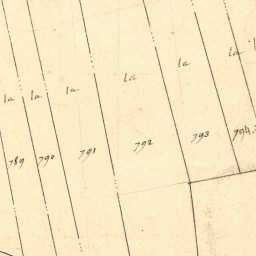 la la la la la la
789 790 791 792 793 794